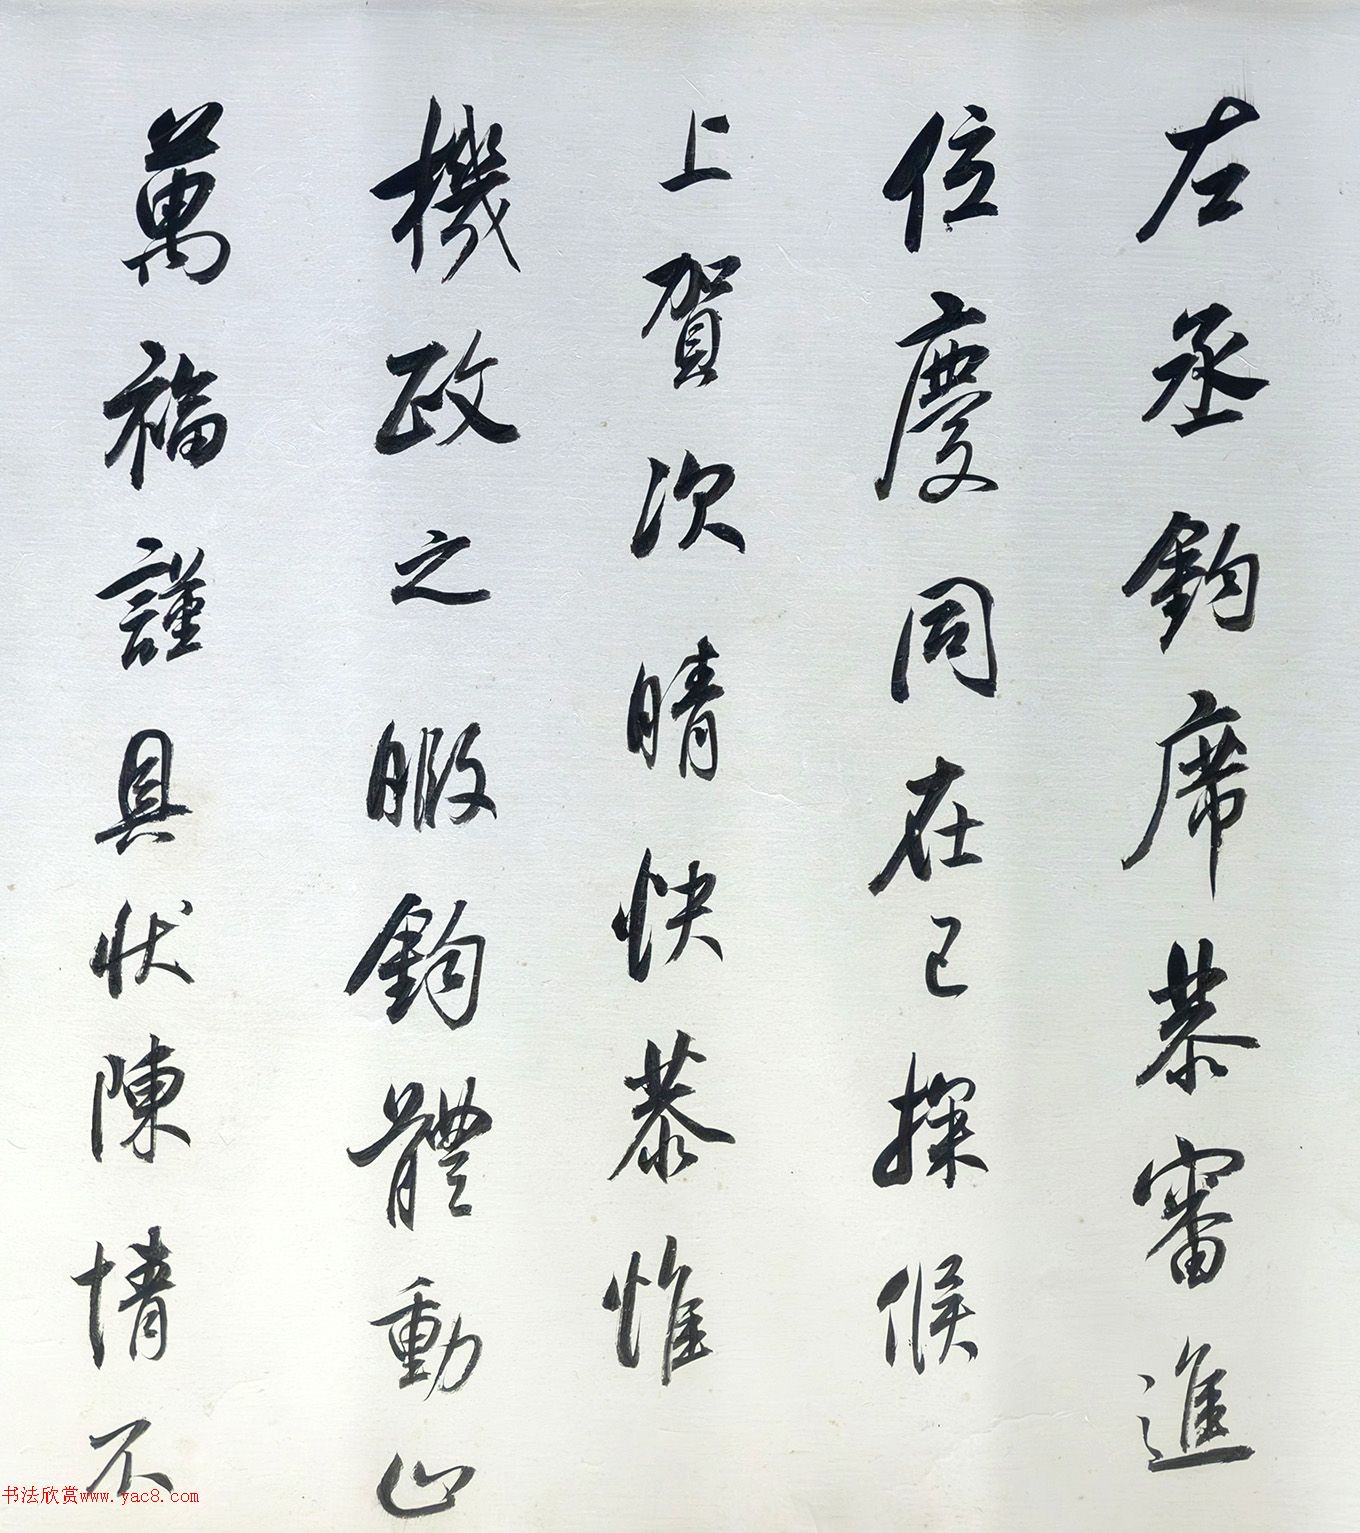 左丞鈞席恭審進
位慶同在已探候
上賀次晴快恭惟
機政之暇鈞體動止
萬福謹具状陳情不
书法欣赏www.yac8.com